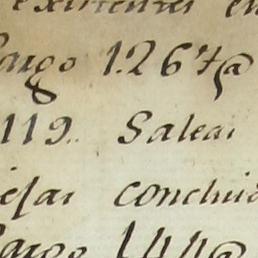 existentes en
Largo 1.267@
119. Saleas
iejas conclui
Largo 144@